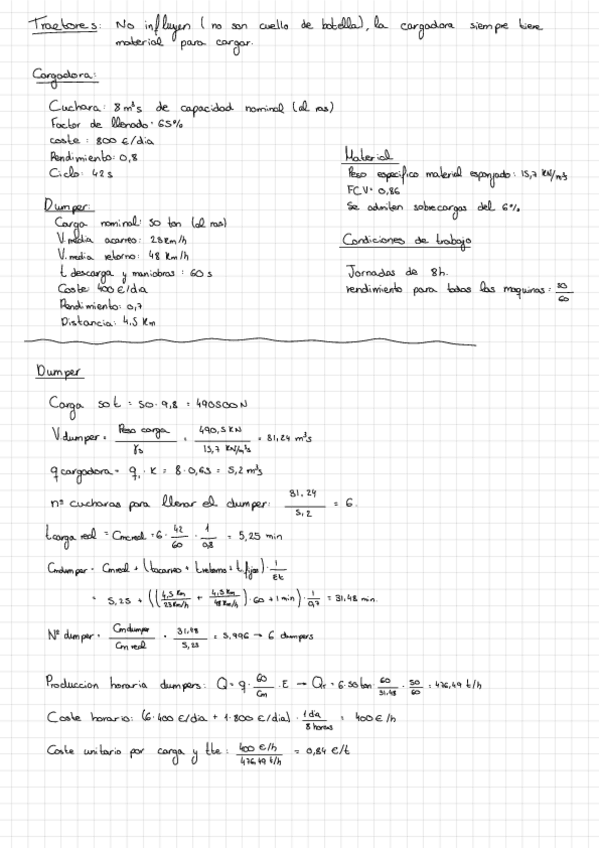 Tractores: No influyen (no son cuello de botella), la cargadora siempre tiene
material para cargar.
Cargadora:
Cuchara: 8 m³s de capacidad nominal (al ras)
Factor de llenado: 65%
coste: 800 €/dia
Rendimiento: 0,8
Ciclo: 42 s
Material
Peso especifico material esponjado: 15,7 KN/m³
FCV: 0,86
Se admiten sobrecargas del 6%
Dumper:
Carga nominal: 50 ton (al ras)
V. media acarreo: 28 Km/h
V. media retorno: 48 Km/h
t descarga y maniobras: 60 s
Coste 400 €/dia
Rendimiento: 0,7
Distancia: 4,5 Km
Condiciones de trabajo
Jornadas de 8h.
rendimiento para todas las maquinas: 50/60
Dumper
Carga 50 t = 50 · 9,8 = 490500 N
V dumper = Peso carga / γs = 490,5 KN / 15,7 KN/m³s = 31,24 m³s
q cargadora = q₁ · K = 8 · 0,65 = 5,2 m³s
nº cucharas para llenar el dumper: 31,24 / 5,2 = 6.
t carga real = Cm real = 6 · 42/60 · 1/0,8 = 5,25 min
Cm dumper = Cm real + (t acarreo + t retorno + t fijo) · 1/Et
= 5,25 + ((4,5 Km / 28 Km/h + 4,5 Km / 48 Km/h) · 60 + 1 min) · 1/0,7 = 31,48 min.
Nº dumper = Cm dumper / Cm real = 31,48 / 5,25 = 5,996 → 6 dumpers
Produccion horaria dumpers: Q = q · 60/Cm · E → Qt = 6 · 50 ton · 60/31,48 · 50/60 = 476,49 t/h
Coste horario: (6 · 400 €/dia + 1 · 800 €/dia) · 1 dia / 8 horas = 400 €/h
Coste unitario por carga y tte: 400 €/h / 476,49 t/h = 0,84 €/t